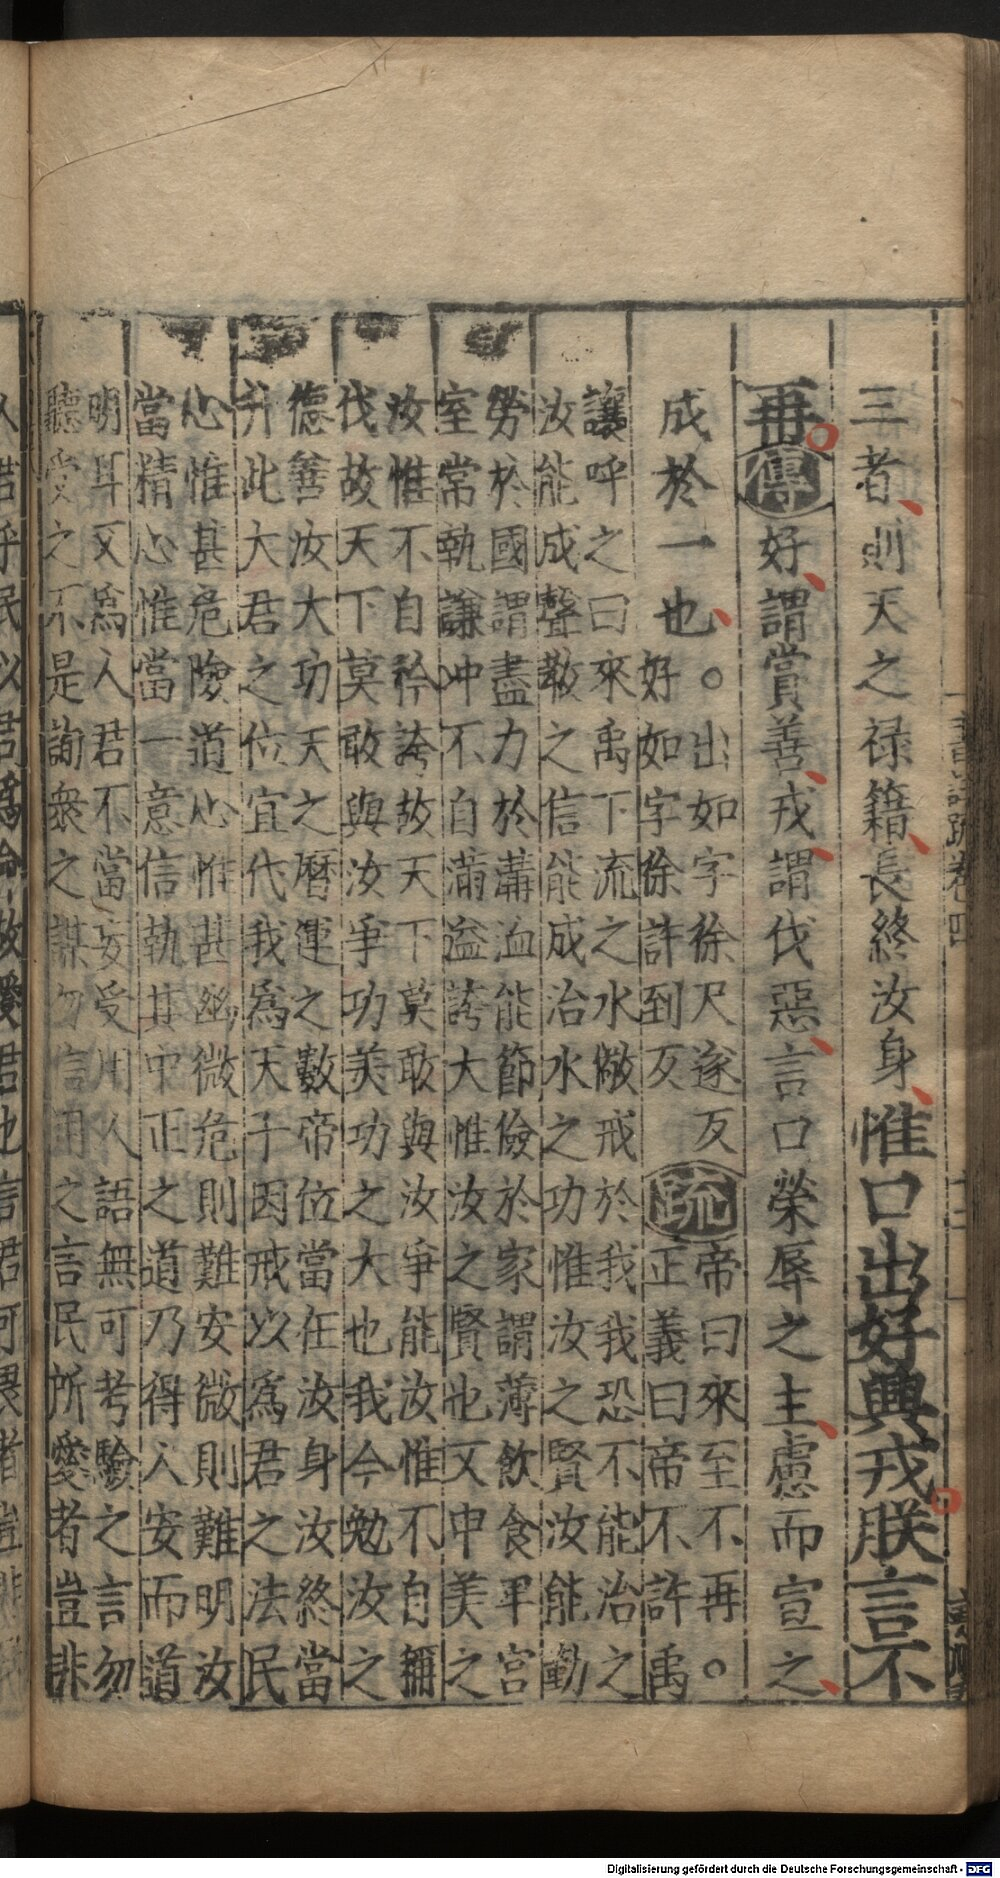 三者則天之禄籍長終汝身惟口出好興戎朕言不
再傳好謂賞善戎謂伐惡言口榮辱之主慮而宣之
成於一也。出如字徐尺遂反
好如字徐許到反疏帝曰來至不再。
正義曰帝不許禹
讓呼之曰來禹下流之水儆戒於我我恐不能治之
汝能成聲教之信能成治水之功惟汝之賢汝能勤
勞於國謂盡力於溝洫能節儉於家謂薄飲食卑宮
室常執謙冲不自滿溢誇大惟汝之賢也又申美之
汝惟不自矜誇故天下莫敢與汝爭能汝惟不自稱
伐故天下莫敢與汝爭功美功之大也我今勉汝之
德善汝大功天之曆運之數帝位當在汝身汝終當
升此大君之位宜代我爲天子因戒以爲君之法民
心惟甚危險道心惟甚幽微危則難安微則難明汝
當精心惟當一意信執其中正之道乃得人安而道
明耳又爲人君不當妄受用人語無可考驗之言勿
聽受之不是詢衆之謀勿信用之言民所愛者豈非
人君乎民以君爲命故愛君也言君可畏者豈非
書註疏卷四
Digitalisierung gefördert durch die Deutsche Forschungsgemeinschaft - DFG